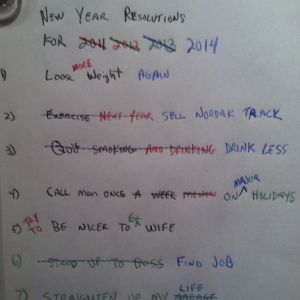 NEW YEAR RESOLUTIONS
FOR 2011 2012 2013 2014
1) Loose MORE Weight AGAIN
2) EXERCISE NEXT YEAR SELL NORDAK TRACK
3) QUIT SMOKING AND DRINKING DRINK LESS
4) CALL MOM ONCE A WEEK MONTH ON MAJOR HOLIDAYS
5) TRY TO BE NICER TO EX WIFE
6) STAND UP TO BOSS FIND JOB
7) STRAIGHTEN UP MY GARAGE LIFE